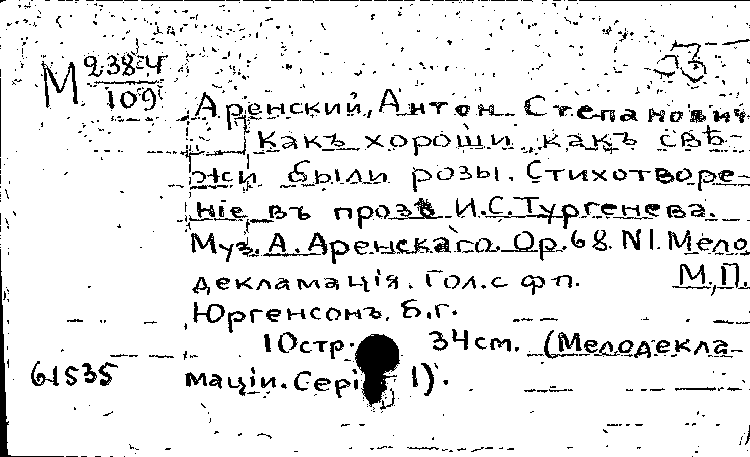 М 238-4
109
Аренский, Антон Степанович
Какъ хороши, какъ свѣ-
жи были розы. Стихотворе-
ніе въ прозѣ И.С. Тургенева.
Муз. А. Аренскаго. Op. 68. N1. Мело
декламація. Гол. с фп. М., П.
Юргенсонъ, б.г.
10стр. 34см. (Мелодекла-
61535 маціи. Серія 1).